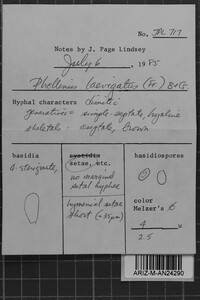 No. JPL 717
Notes by J. Page Lindsey
July 6, 1985
Phellinus laevigatus (Fr.) B+G
Hyphal characters dimitic
generatives = simple-septate, hyaline
skeletals - aseptate, brown
basidia
4-sterigmate,
cystidia
setae, etc.
no marginal
setal hyphae
hymenial setae
short (<35µm)
basidiospores
color
Melzer's
4 u
2.5
ARIZ-M-AN24290